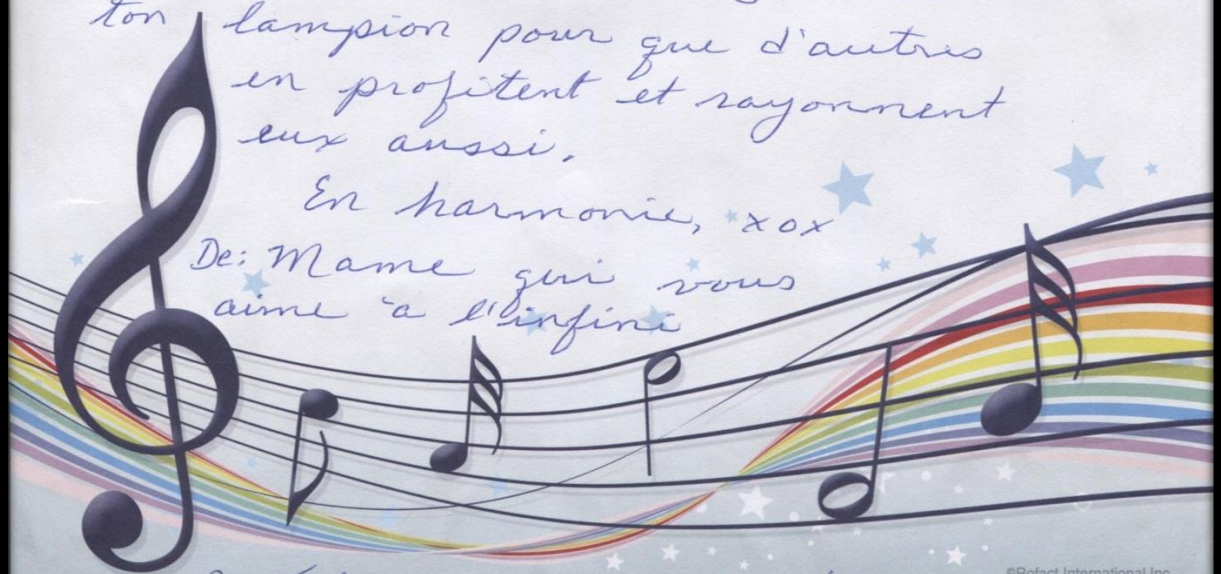 ton lampion pour que d'autres
en profitent et rayonnent
eux aussi.
En harmonie, xox
De: Mame qui vous
aime à l'infini
©Refact International Inc.